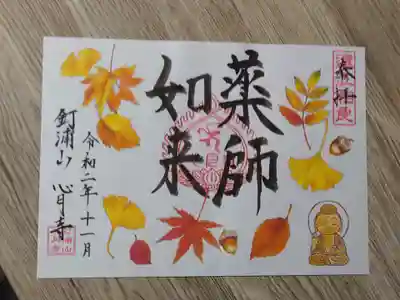 奉拝
薬師
如来
令和二年十一月
釘浦山 心月寺